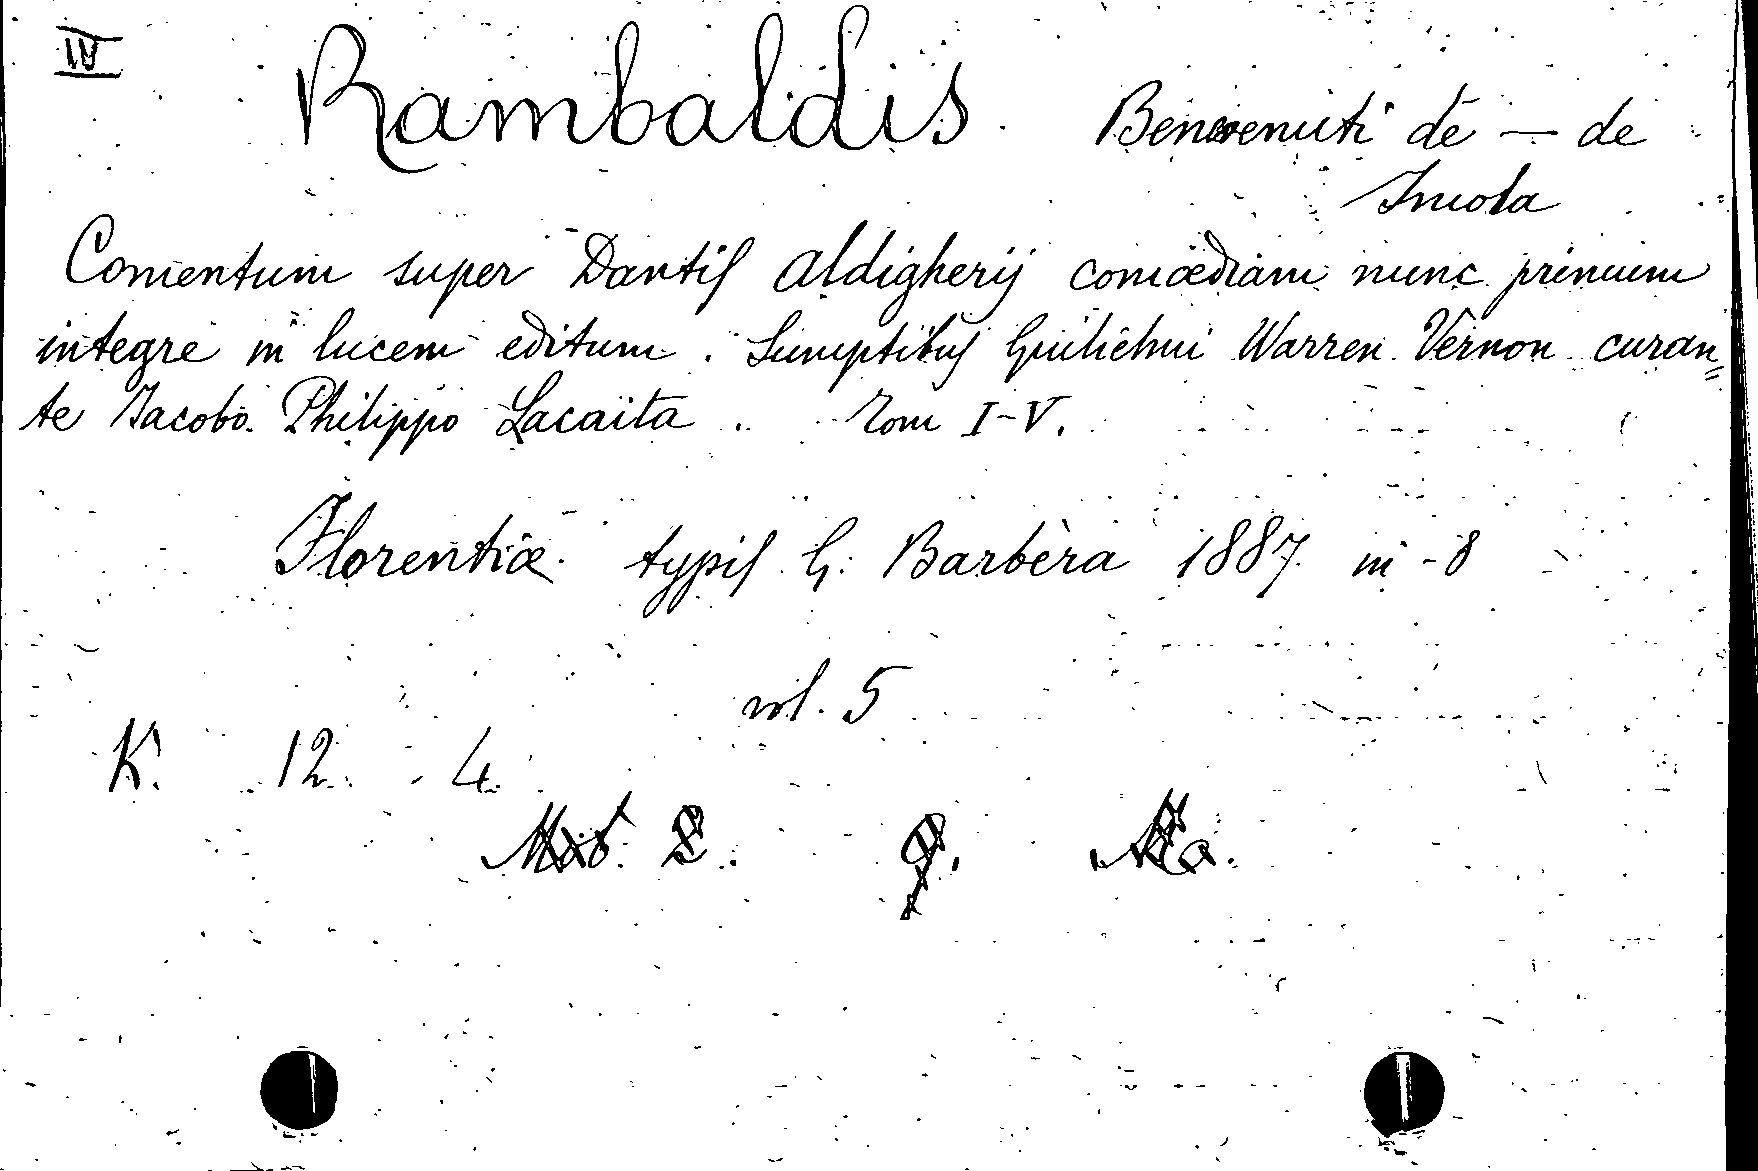 IV
Rambaldis Benevenuti de — de
Imola
Comentum super Dantis Aldigherij comœdiam nunc primum
integre in lucem editum. Sumptibus Guilielmi Warren Vernon curan=
te Jacobo Philippo Lacaita. Tom I-V.
Florentiæ typis G. Barbèra 1887 in-8
vol. 5
K. 12. 4